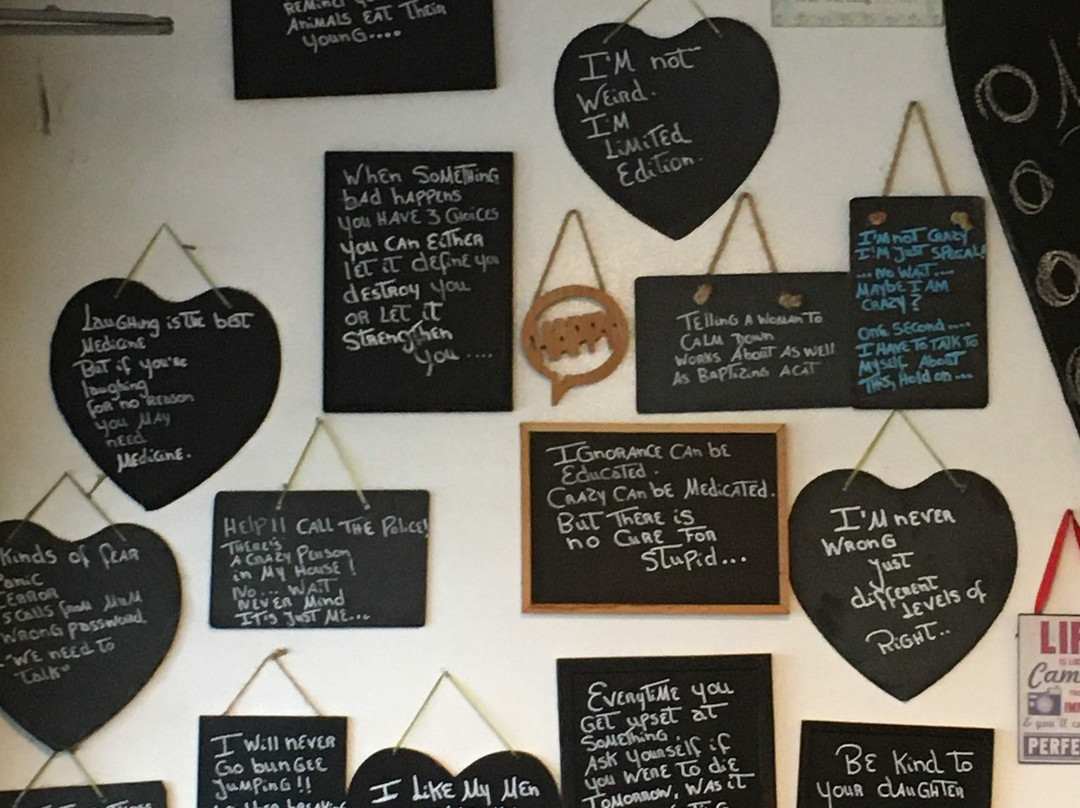 Animals Eat Their
Young....
I'm not
Weird.
I'm
Limited
Edition.
When Something
bad happens
you have 3 choices
you can either
let it define you
destroy you
or let it
strengthen
you ....
Telling a woman to
calm down
works about as well
as baptizing a cat
I'm not crazy
I'm just special!
... no wait....
maybe I am
crazy?
One second....
I have to talk to
myself about
this, hold on...
Laughing is the best
Medicine
But if you're
laughing
for no reason
you may
need
Medicine.
Help!! Call the Police!
There's
a crazy person
in my house!
No... wait
never mind
it's just me...
Ignorance can be
Educated.
Crazy can be Medicated.
But there is
no cure for
Stupid...
I'm never
Wrong
Just
different
levels of
Right..
Kinds of fear
Panic
Terror
calls from mum
Wrong password.
"We need to
talk"
I will never
Go bungee
jumping!!
I like my men
Everytime you
get upset at
something,
ask yourself if
you were to die
tomorrow, was it
Be kind to
your daughter
LI
Cam
& you'll c
PERFE